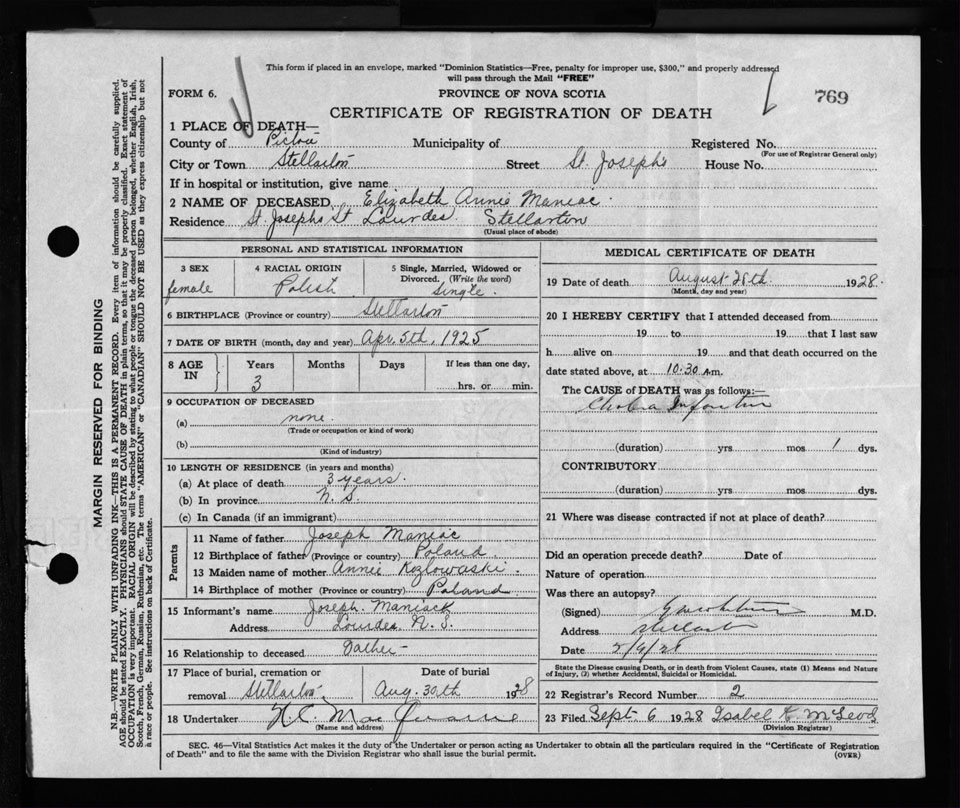 This form if placed in an envelope, marked "Dominion Statistics—Free, penalty for improper use, $300," and properly addressed
will pass through the Mail "FREE"
FORM 6.
PROVINCE OF NOVA SCOTIA
769
CERTIFICATE OF REGISTRATION OF DEATH
1 PLACE OF DEATH—
County of Pictou Municipality of Registered No.
(For use of Registrar General only)
City or Town Stellarton Street St. Josephs House No.
If in hospital or institution, give name
2 NAME OF DECEASED Elizabeth Annie Maniac.
Residence St. Josephs St Lourdes. Stellarton
(Usual place of abode)
PERSONAL AND STATISTICAL INFORMATION
3 SEX 4 RACIAL ORIGIN 5 Single, Married, Widowed or
Divorced. (Write the word)
female Polish single.
6 BIRTHPLACE (Province or country) Stellarton
7 DATE OF BIRTH (month, day and year) Apr. 5th, 1925
8 AGE IN Years Months Days If less than one day,
3 hrs. or min.
9 OCCUPATION OF DECEASED
(a) none.
(Trade or occupation or kind of work)
(b)
(Kind of industry)
10 LENGTH OF RESIDENCE (in years and months)
(a) At place of death 3 years.
(b) In province N. S.
(c) In Canada (if an immigrant)
Parents
11 Name of father Joseph Maniac
12 Birthplace of father (Province or country) Poland.
13 Maiden name of mother Annie Kozlowaski.
14 Birthplace of mother (Province or country) Poland
15 Informant's name Joseph Maniack
Address Lourdes N. S.
16 Relationship to deceased Father -
17 Place of burial, cremation or Date of burial
removal Stellarton. Aug. 30th 1928
18 Undertaker
(Name and address)
MEDICAL CERTIFICATE OF DEATH
19 Date of death August 28th 1928.
(Month, day and year)
20 I HEREBY CERTIFY that I attended deceased from
19 to 19 that I last saw
h alive on 19 and that death occurred on the
date stated above, at 10.30 a.m.
The CAUSE of DEATH was as follows:—
Cholera Infantum
(duration) yrs mos 1 dys.
CONTRIBUTORY
(duration) yrs. mos. dys.
21 Where was disease contracted if not at place of death?
Did an operation precede death? Date of
Nature of operation
Was there an autopsy?
(Signed) M.D.
Address Stellarton
Date 5/9/28
State the Disease causing Death, or in death from Violent Causes, state (1) Means and Nature
of Injury, (2) whether Accidental, Suicidal or Homicidal.
22 Registrar's Record Number 2
23 Filed Sept. 6 1928 Isabel K. McLeod
(Division Registrar)
SEC. 46—Vital Statistics Act makes it the duty of the Undertaker or person acting as Undertaker to obtain all the particulars required in the "Certificate of Registration
of Death" and to file the same with the Division Registrar who shall issue the burial permit.
(OVER)
MARGIN RESERVED FOR BINDING
N.B.—WRITE PLAINLY WITH UNFADING INK—THIS IS A PERMANENT RECORD. Every items of information should be carefully supplied.
AGE should be stated EXACTLY. PHYSICIANS should STATE CAUSE OF DEATH in plain terms, so that it may be properly classified. Exact statement of
OCCUPATION is very important. RACIAL ORIGIN will be described by stating to what people or tongue the deceased person belonged, whether English, Irish,
Scotch, French, German, Russian, Ruthenian, etc. The terms "AMERICAN" or "CANADIAN" SHOULD NOT BE USED as they express citizenship but not
a race or people. See instructions on back of Certificate.